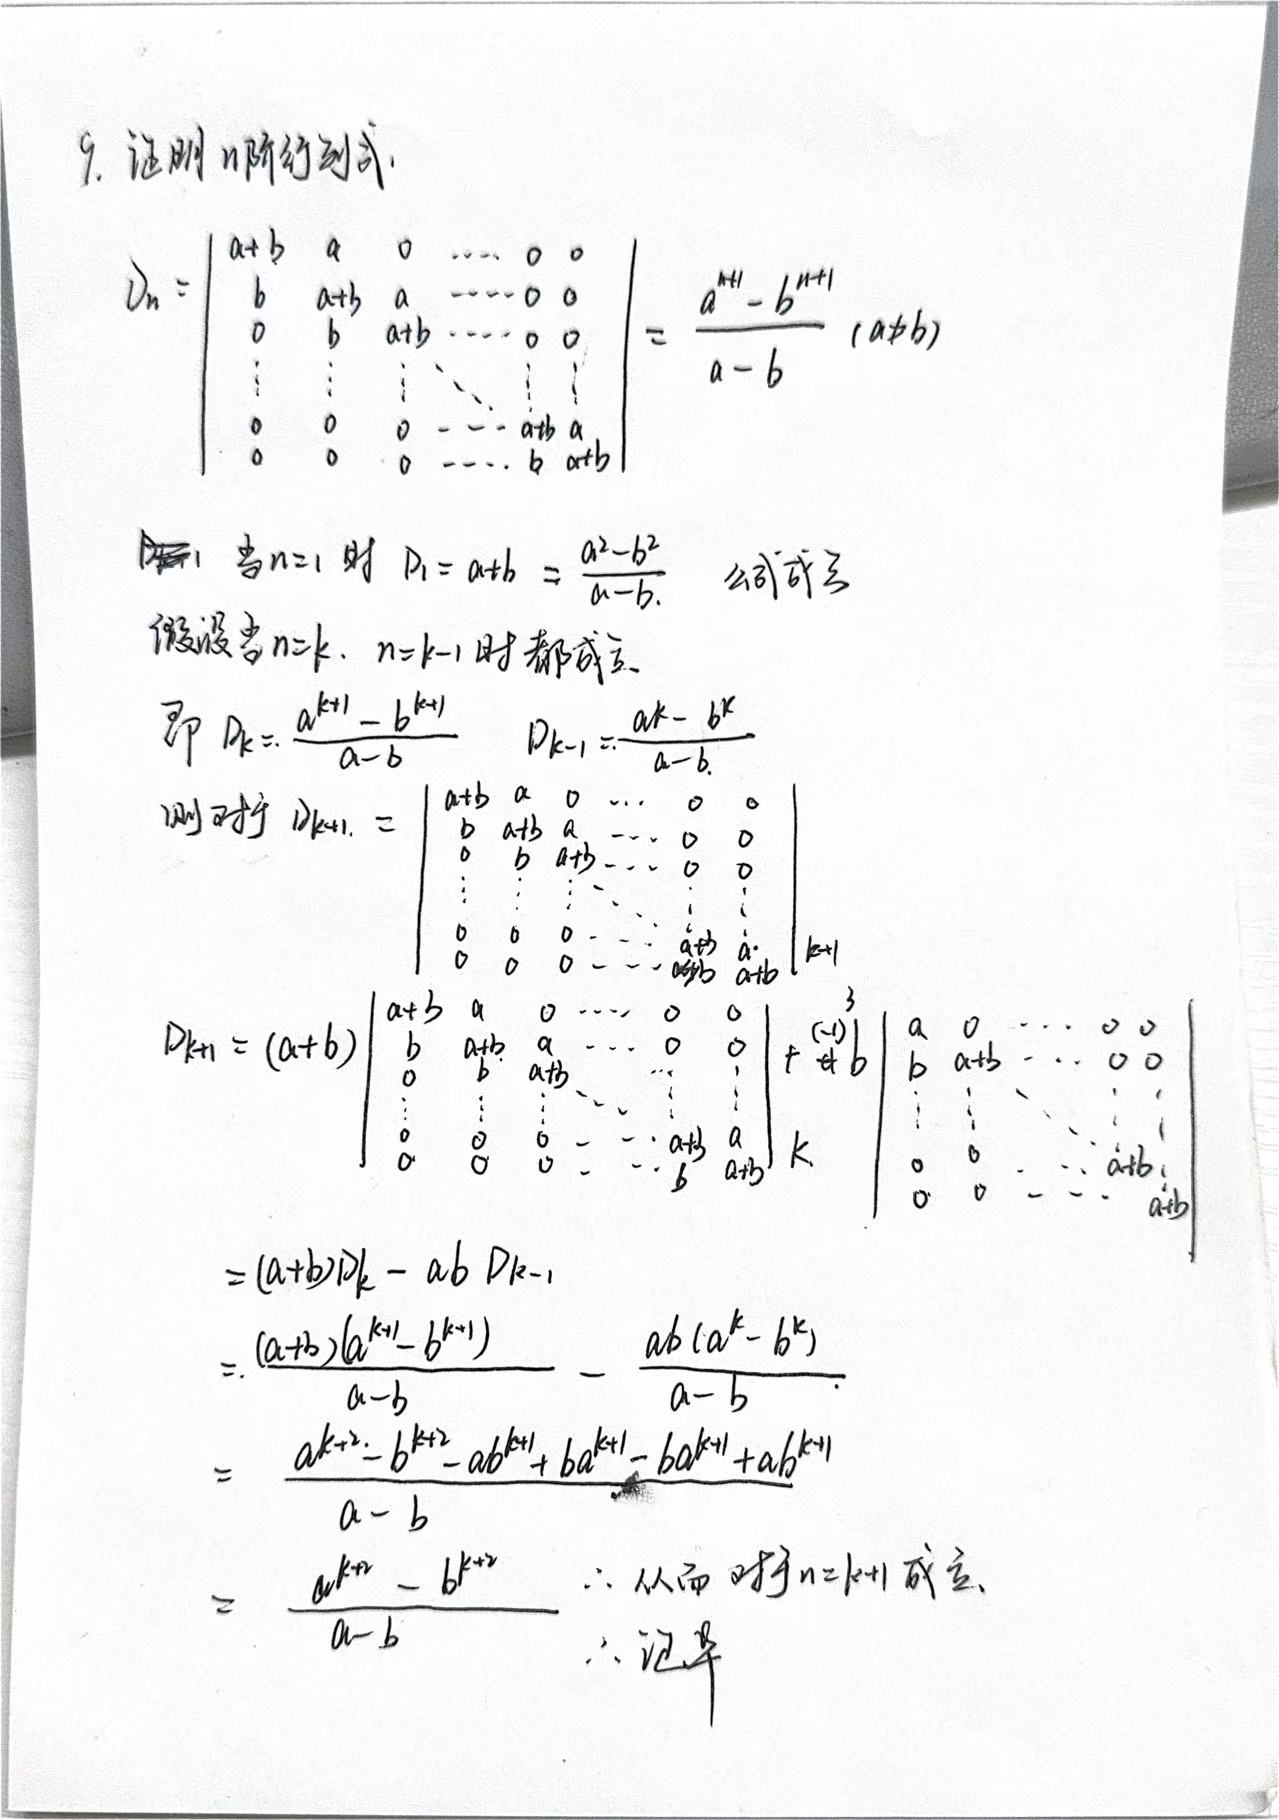 9. 证明n阶行列式.
Dn = | a+b a 0 .... 0 0 |
| b a+b a ---- 0 0 |
| 0 b a+b ---- 0 0 | = (a^{n+1} - b^{n+1}) / (a - b) (a≠b)
| ⋮ ⋮ ⋮ ⋱ ⋮ ⋮ |
| 0 0 0 --- a+b a |
| 0 0 0 ---- b a+b |
当n=1时 D₁ = a+b = (a²-b²)/(a-b). 公式成立
假设当n=k. n=k-1时都成立.
即 Dk = (a^{k+1} - b^{k+1})/(a-b) D_{k-1} = (a^k - b^k)/(a-b).
则对于 D_{k+1} = | a+b a 0 ... 0 0 |
| b a+b a ---- 0 0 |
| 0 b a+b --- 0 0 |
| ⋮ ⋮ ⋮ ⋱ ⋮ ⋮ |
| 0 0 0 --- a+b a |
| 0 0 0 --- b a+b | k+1
D_{k+1} = (a+b) | a+b a 0 ---- 0 0 | + (-1)³ b | a 0 ---- 0 0 |
| b a+b a --- 0 0 | | b a+b --- 0 0 |
| 0 b a+b ... ⋮ | | ⋮ ⋮ ⋱ ⋮ ⋮ |
| ⋮ ⋮ ⋮ ⋱ ⋮ ⋮ |
| 0 0 0 --- a+b a | k. | 0 0 --- a+b ⋮ |
| 0 0 0 --- b a+b | | 0 0 --- a+b |
= (a+b)Dk - ab D_{k-1}
= (a+b)(a^{k+1} - b^{k+1})/(a-b) - ab(a^k - b^k)/(a-b).
= (a^{k+2} - b^{k+2} - ab^{k+1} + ba^{k+1} - ba^{k+1} + ab^{k+1})/(a-b)
= (a^{k+2} - b^{k+2})/(a-b) ∴ 从而对于n=k+1成立.
∴ 证毕